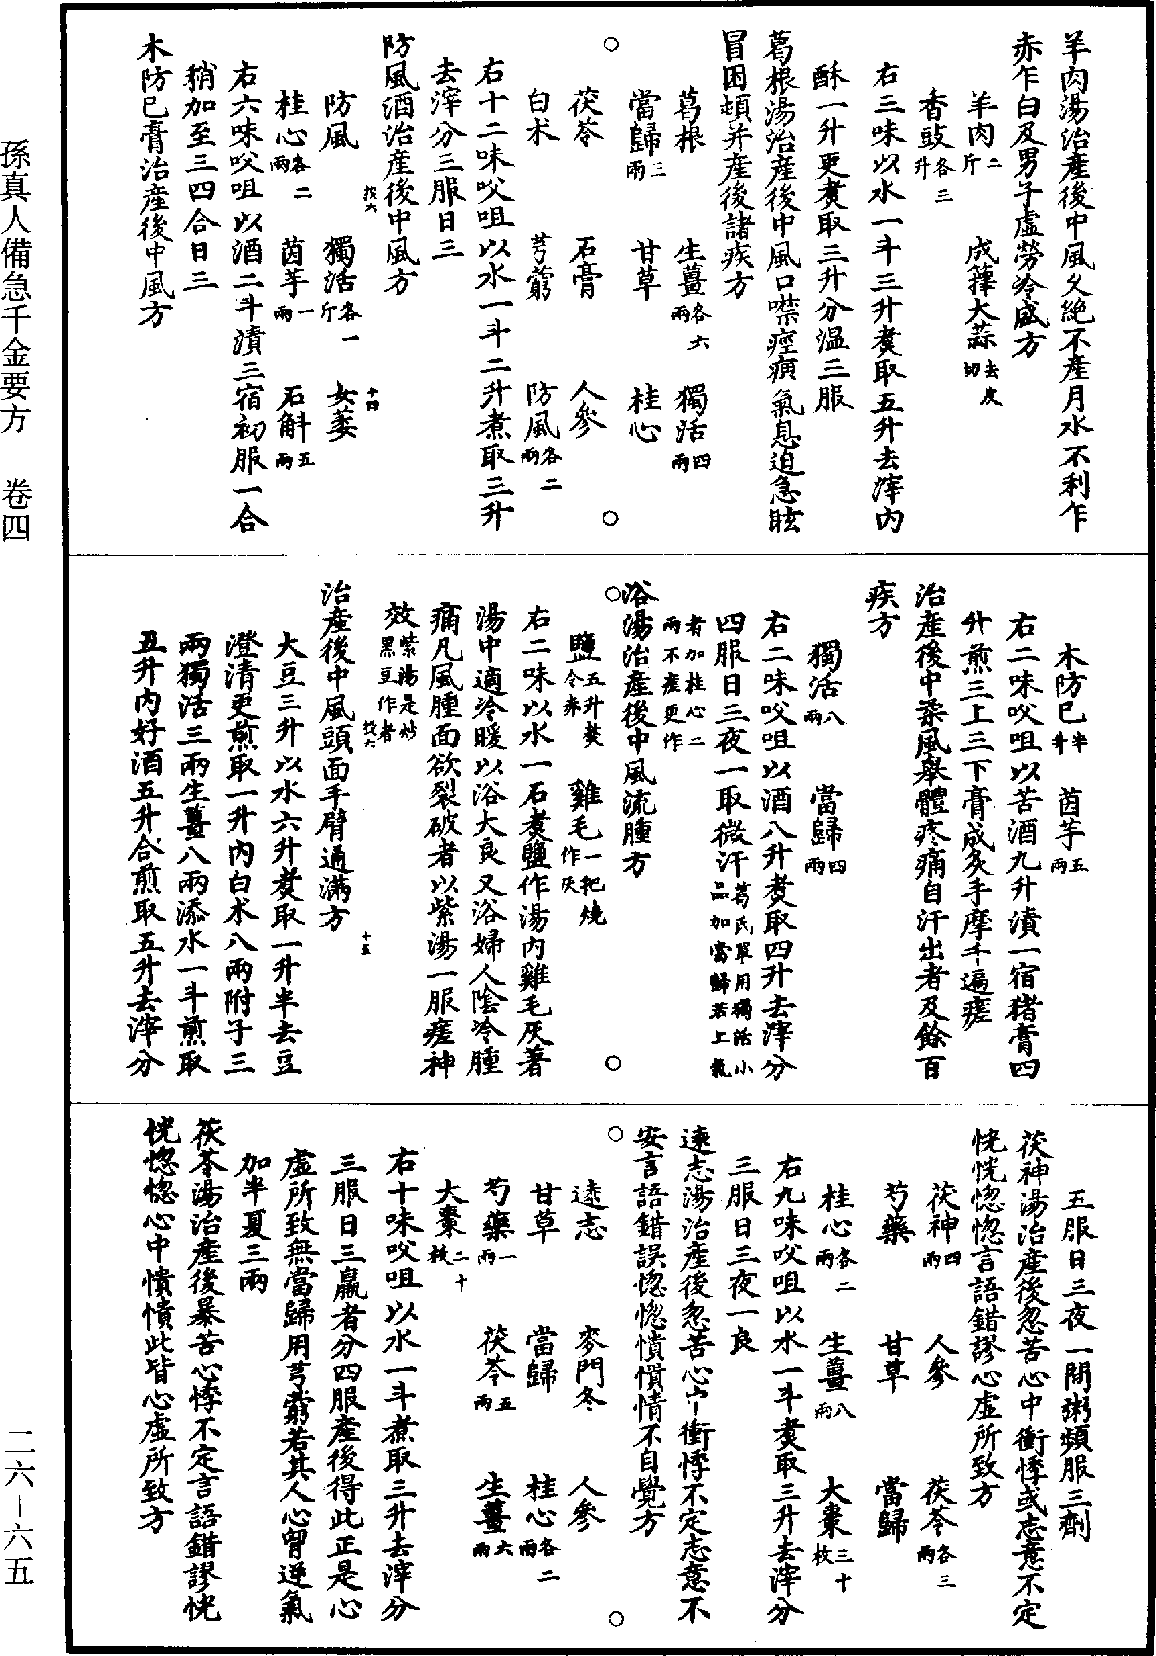 孫真人備急千金要方　卷四
二六－六五
羊肉湯治產後中風久絶不產月水不利乍
赤乍白及男子虛勞冷盛方
羊肉二斤　成擇大蒜去皮切
香豉各三升
右三味以水一斗三升煑取五升去滓内
酥一升更煑取三升分温三服
葛根湯治產後中風口噤痙痹氣息迫急眩
冒困頓并產後諸疾方
葛根　生薑各六兩　獨活四兩
當歸三兩　甘草　桂心
茯苓　石膏　人參
白术　芎藭　防風各二兩
右十二味㕮咀以水一斗二升煮取三升
去滓分三服日三
防風酒治產後中風方
防風　獨活各一斤　女萎
桂心各二兩　茵芋一兩　石斛五兩
右六味㕮咀以酒二斗漬三宿初服一合
稍加至三四合日三
木防己膏治產後中風方
木防己半升　茵芋五兩
右二味㕮咀以苦酒九升漬一宿猪膏四
升煎三上三下膏成炙手摩千遍瘥
治產後中柔風舉體疼痛自汗出者及餘百
疾方
獨活八兩　當歸四兩
右二味㕮咀以酒八升煑取四升去滓分
四服日三夜一取微汗葛氏單用獨活小品加當歸若上氣
者加桂心二兩不瘥更作
浴湯治產後中風流腫方
鹽五升熬令赤　雞毛一把燒作灰
右二味以水一石煑鹽作湯内雞毛灰著
湯中適冷暖以浴大良又浴婦人陰冷腫
痛凡風腫面欲裂破者以紫湯一服瘥神
效紫湯是炒黑豆作者
治產後中風頭面手臂通滿方
大豆三升以水六升煑取一升半去豆
澄清更煎取一升内白术八兩附子三
兩獨活三兩生薑八兩添水一斗煎取
五升内好酒五升合煎取五升去滓分
五服日三夜一間粥頻服三劑
茯神湯治產後忽苦心中衝悸或志意不定
恍恍惚惚言語錯謬心虛所致方
茯神四兩　人參　茯苓各三兩
芍藥　甘草　當歸
桂心各二兩　生薑八兩　大棗三十枚
右九味㕮咀以水一斗煑取三升去滓分
三服日三夜一良
遠志湯治產後忽苦心中衝悸不定志意不
安言語錯誤惚惚憒憒情不自覺方
遠志　麥門冬　人參
甘草　當歸　桂心各二兩
芍藥一兩　茯苓五兩　生薑六兩
大棗二十枚
右十味㕮咀以水一斗煮取三升去滓分
三服日三羸者分四服產後得此正是心
虛所致無當歸用芎藭若其人心胷逆氣
加半夏三兩
茯苓湯治產後暴苦心悸不定言語錯謬恍
恍惚惚心中憒憒此皆心虛所致方